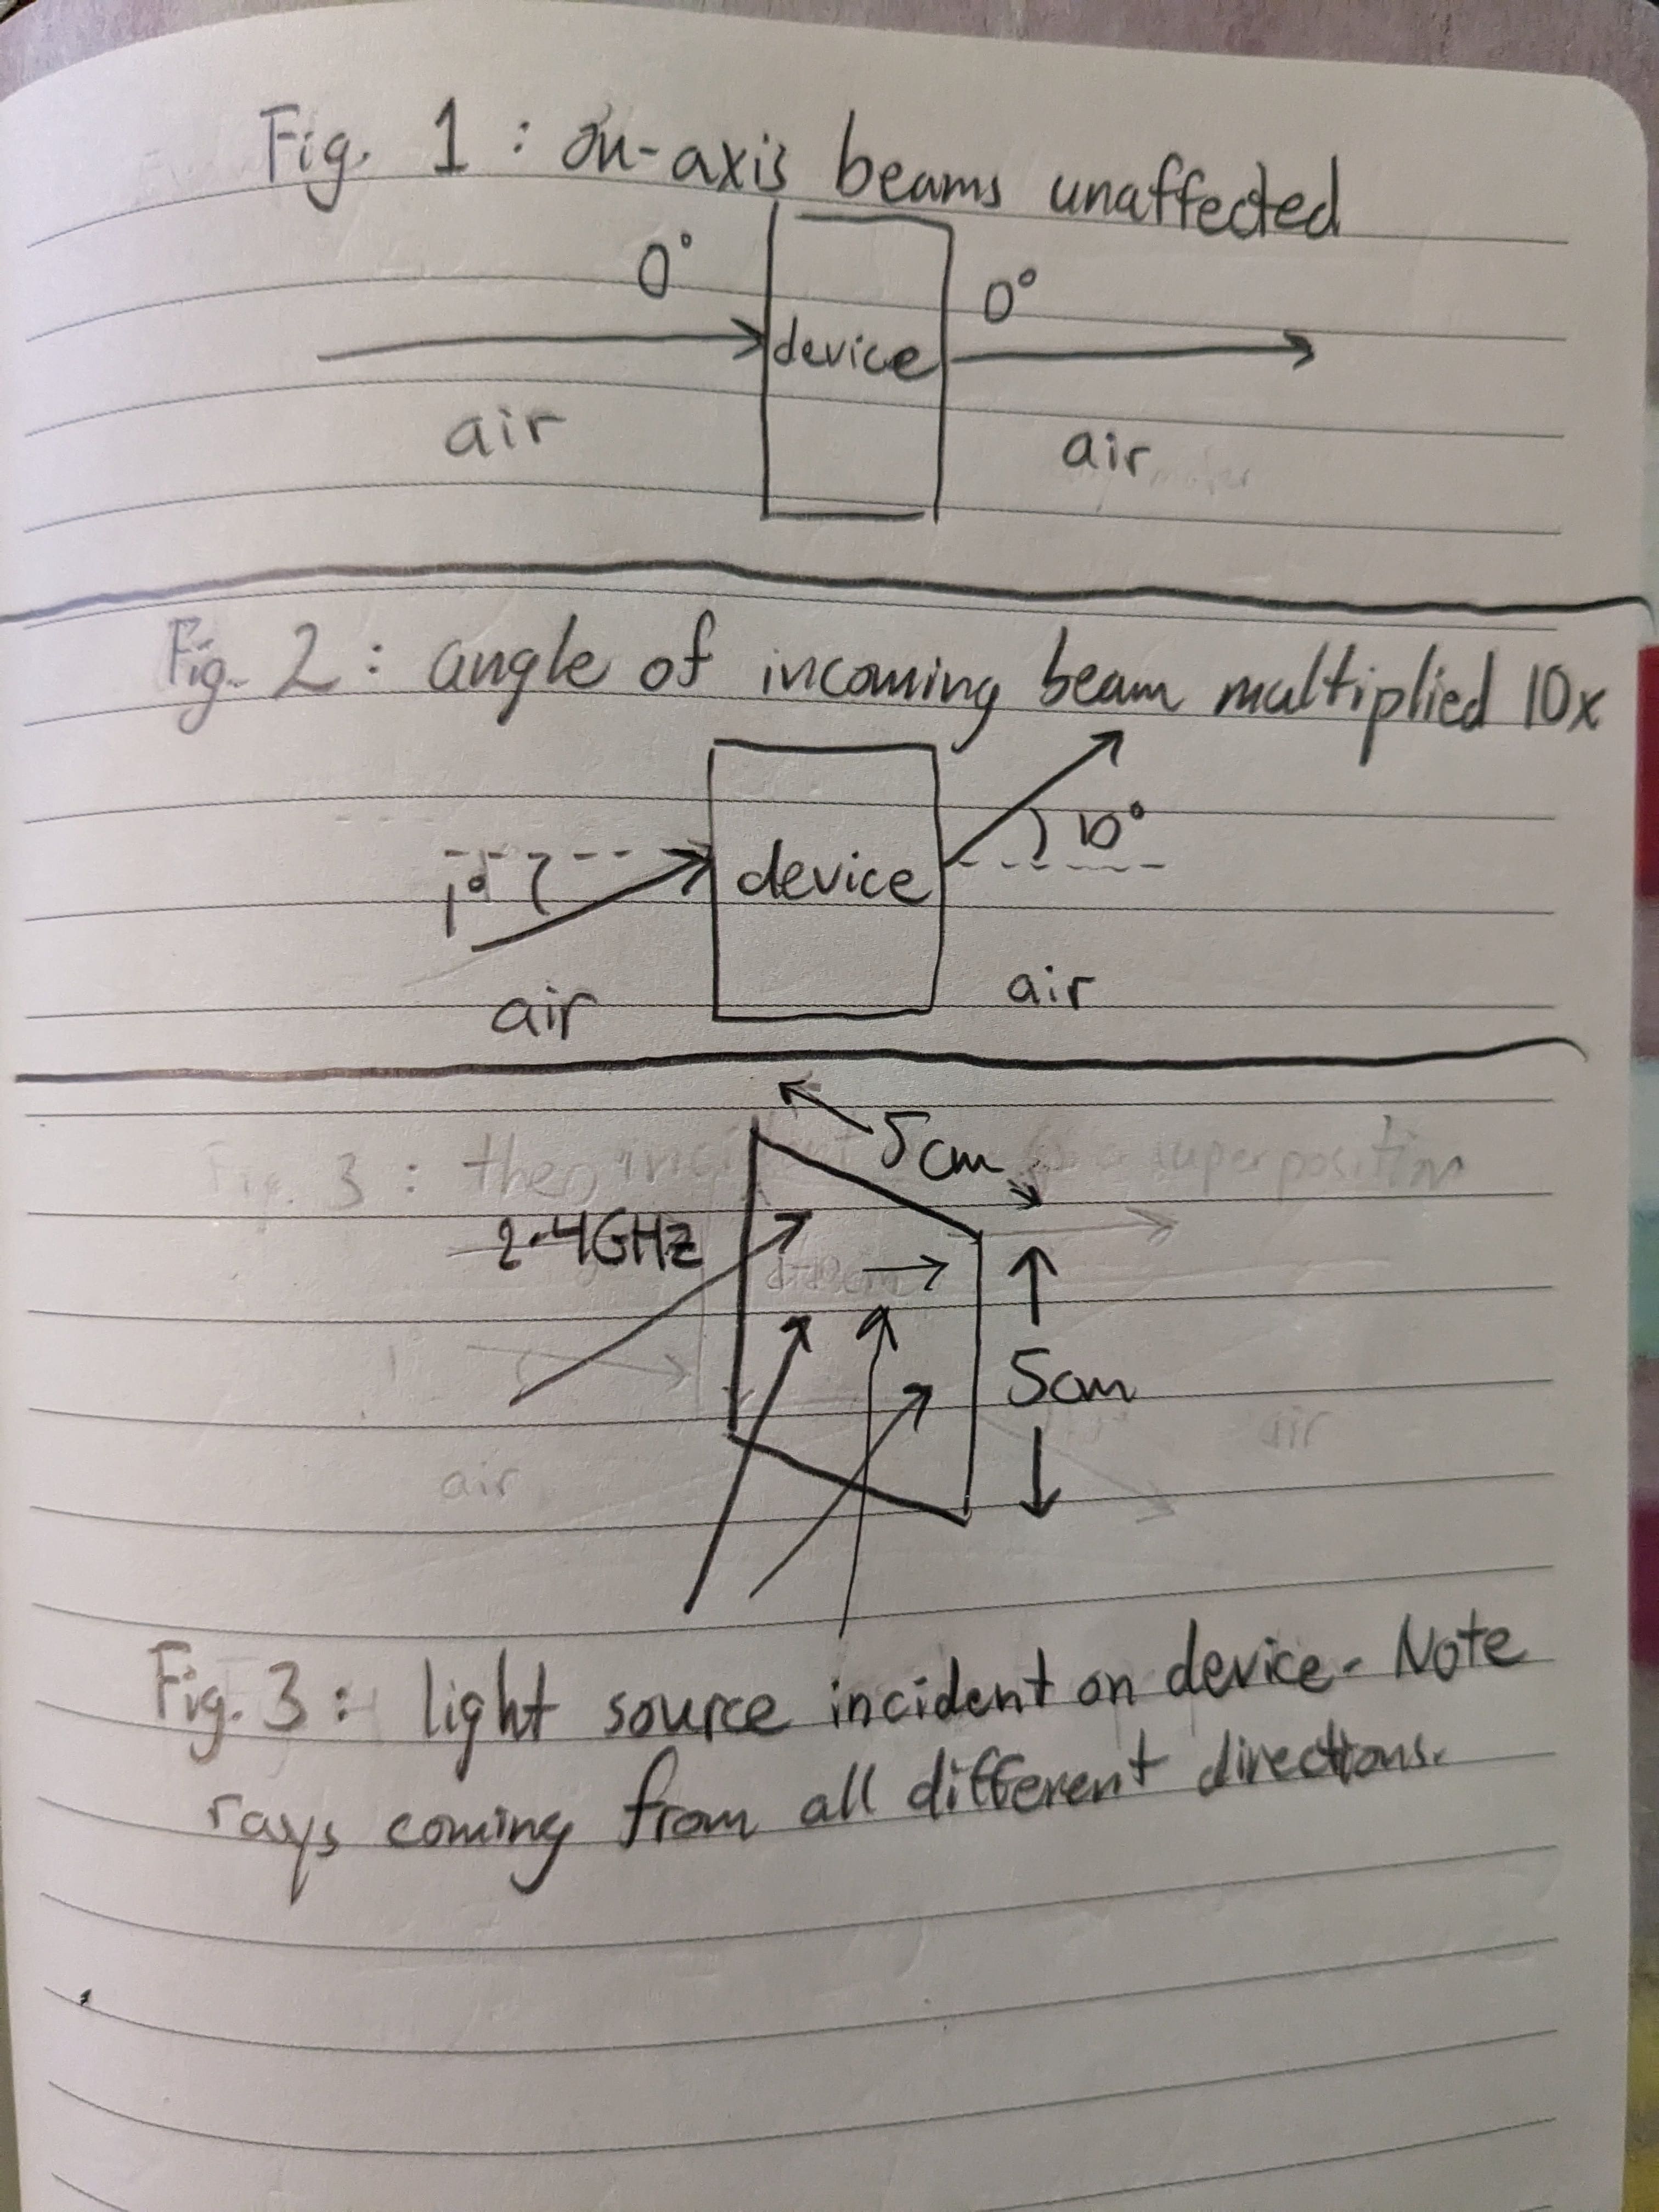 Fig. 1 : on-axis beams unaffected
0° 0°
device
air air
Fig. 2 : angle of incoming beam multiplied 10x
1° 10°
device
air air
5cm
Fig. 3 : the incident superposition
2.4GHz
5cm
air air
Fig. 3 : light source incident on device - Note
rays coming from all different directions.